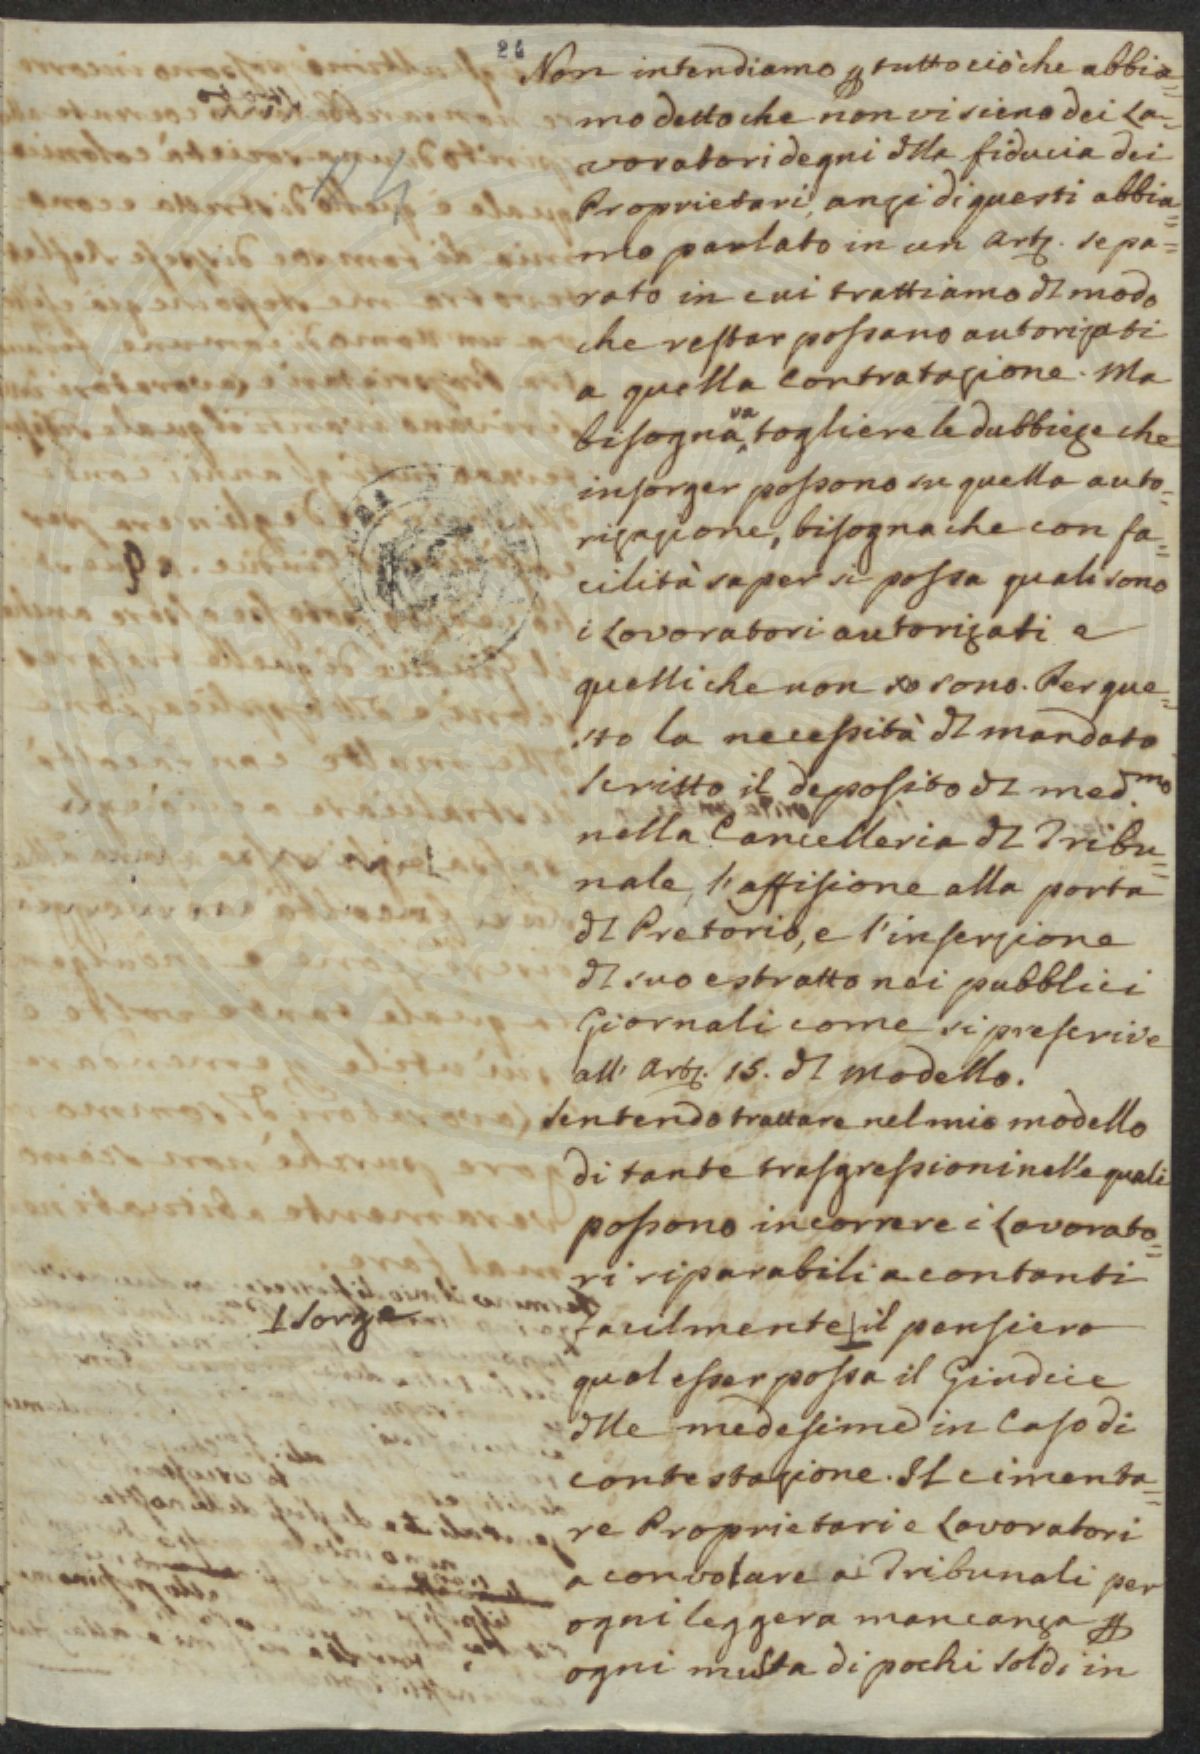 24
Non intendiamo p tutto ciò che abbia=
mo detto che non vi sieno dei La=
voratori degni dlla fiducia dei
Proprietari, anzi di questi abbia=
mo parlato in un Artz. sepa=
rato in cui trattiamo dl modo
che restar possano autorizati
a quella Contratazione. Ma
va
bisogna togliere le dubbieze che
insorger possono su quella auto=
rizazione, bisogna che con fa=
cilità saper si possa quali sono
i Lavoratori autorizati e
quelli che non sono. Per que=
sto la necessità dl mandato
scritto il deposito dl med.mo
nella Cancelleria dl Tribu=
nale, l'affisione alla porta
dl Pretorio, e l'inserzione
dl suo estratto nei pubblici
Giornali come si prescrive
all' Artz. 15. dl Modello.
Sentendo trattare nel mio modello
di tante trasgressioni nelle quali
possono incorrere i Lavorato=
ri riparabili a contanti
Sorge
facilmente il pensiero
qual esser possa il Giudice
dlle medesime in Caso di
contestazione. Il cimenta=
re Proprietari e Lavoratori
a convolare ai Tribunali per
ogni leggera mancanza p
ogni multa di pochi soldi in